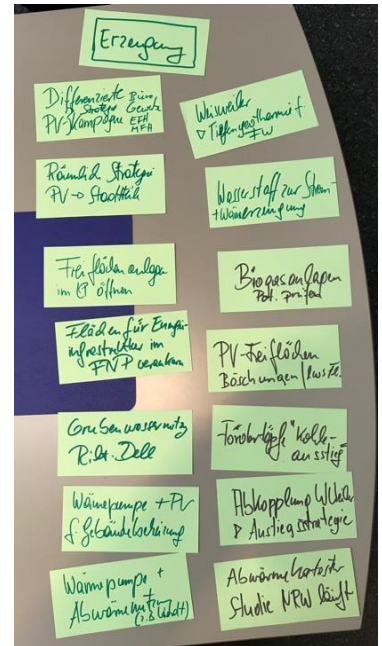 Erzeugung
Differenzierte Büro
Strategie Gewerbe
PV-Kampagne EFH
MFH
Räumliche Strategie
PV → Stadtteile
Freiflächenanlagen
im öffnen
Flächen für Energie-
infrastruktur im
FNP verankern
Grubenwassernutz
Wärmepumpe + PV
f. Gebäudeheizung
Wärmepumpe +
Abwärmenutzung
Weisweiler
Tiefengeothermie f.
FW
Wasserstoff zur Strom-
+ Wärmeerzeugung
Biogasanlagen
Pot. prüfen
PV-Freiflächen
Böschungen
Fördertöpfe "Kohle-
ausstieg"
Abkopplung
Ausstiegsstrategie
Abwärmekataster
Studie NRW läuft